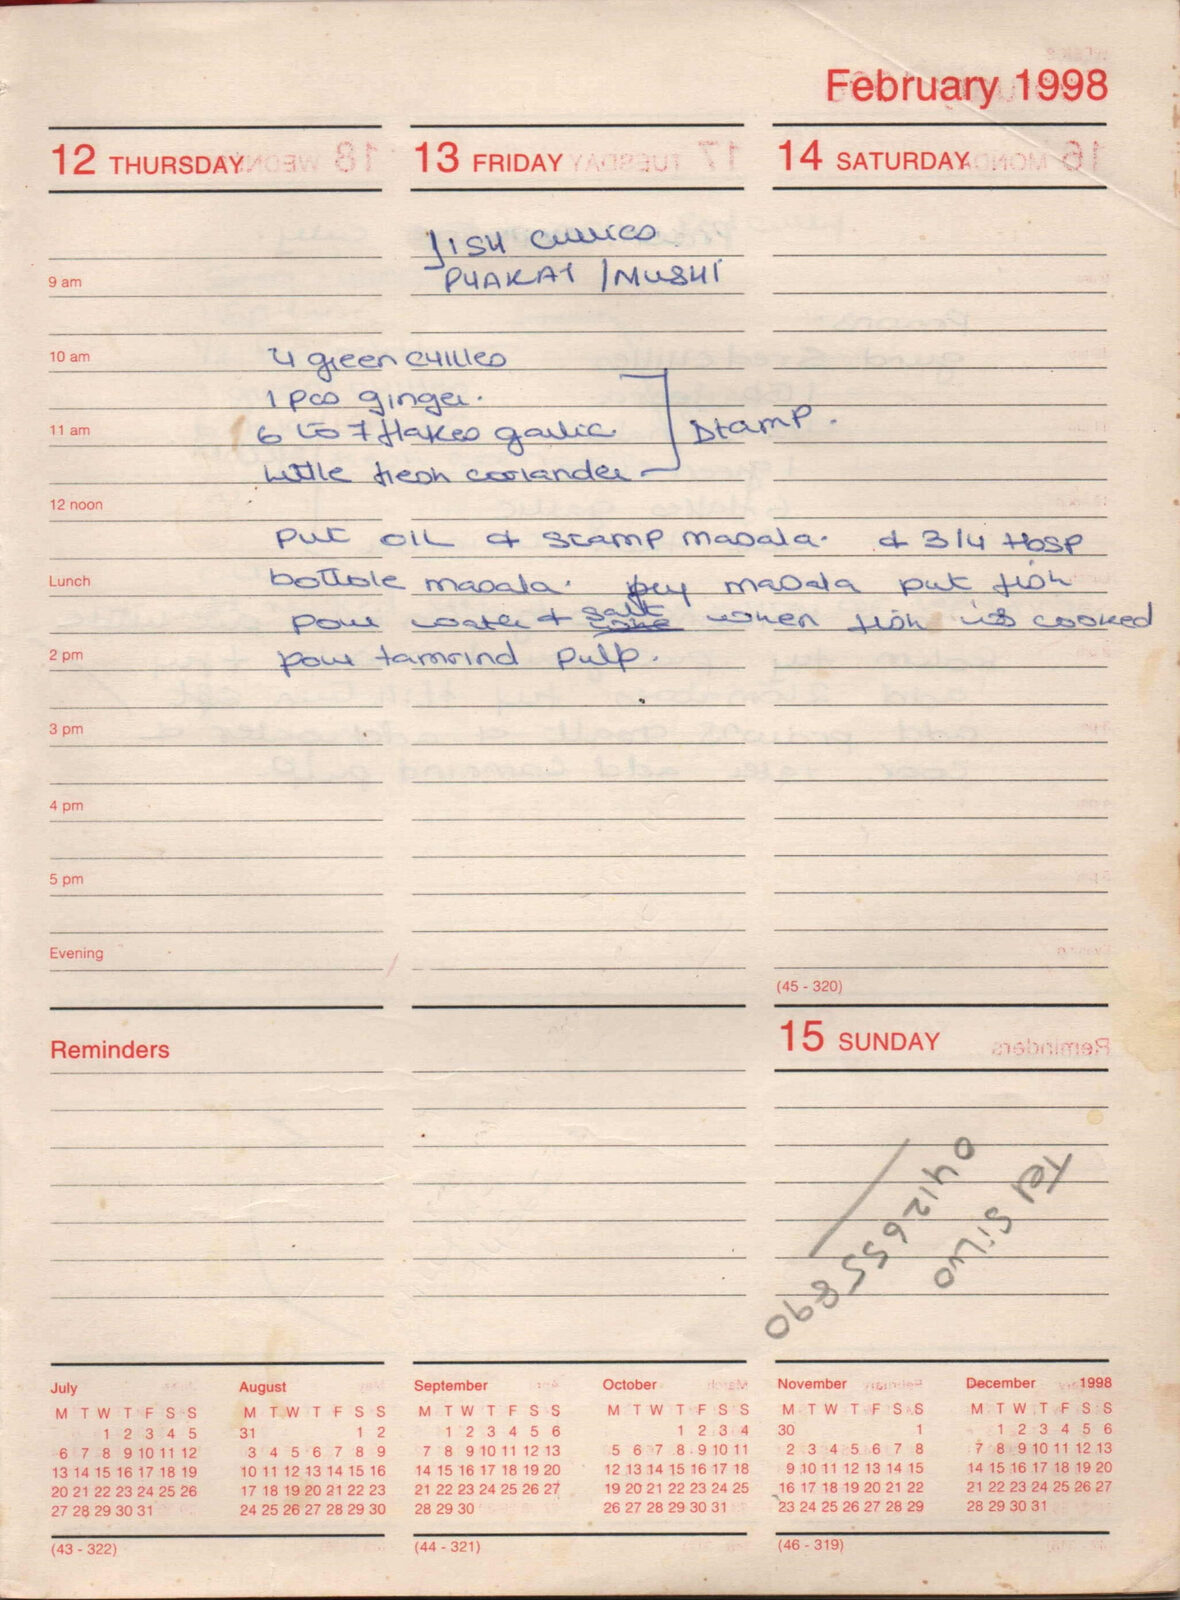 February 1998
12 THURSDAY
13 FRIDAY
14 SATURDAY
fish curries
PHAKAT / MUSHI
9 am
10 am
4 green chillies
1 pce ginger.
11 am
6 to 7 flakes garlic
Stamp.
little fresh coriander
12 noon
put oil & stamp masala. & 3/4 tbsp
Lunch
bottole masala. fry masala put fish
pour water & salt when fish is cooked
2 pm
pour tamrind pulp.
3 pm
4 pm
5 pm
Evening
(45 - 320)
Reminders
15 SUNDAY
Tel Silvo
0412655890
July
M T W T F S S
1 2 3 4 5
6 7 8 9 10 11 12
13 14 15 16 17 18 19
20 21 22 23 24 25 26
27 28 29 30 31
(43 - 322)
August
M T W T F S S
31 1 2
3 4 5 6 7 8 9
10 11 12 13 14 15 16
17 18 19 20 21 22 23
24 25 26 27 28 29 30
September
M T W T F S S
1 2 3 4 5 6
7 8 9 10 11 12 13
14 15 16 17 18 19 20
21 22 23 24 25 26 27
28 29 30
(44 - 321)
October
M T W T F S S
1 2 3 4
5 6 7 8 9 10 11
12 13 14 15 16 17 18
19 20 21 22 23 24 25
26 27 28 29 30 31
November
M T W T F S S
30 1
2 3 4 5 6 7 8
9 10 11 12 13 14 15
16 17 18 19 20 21 22
23 24 25 26 27 28 29
(46 - 319)
December 1998
M T W T F S S
1 2 3 4 5 6
7 8 9 10 11 12 13
14 15 16 17 18 19 20
21 22 23 24 25 26 27
28 29 30 31